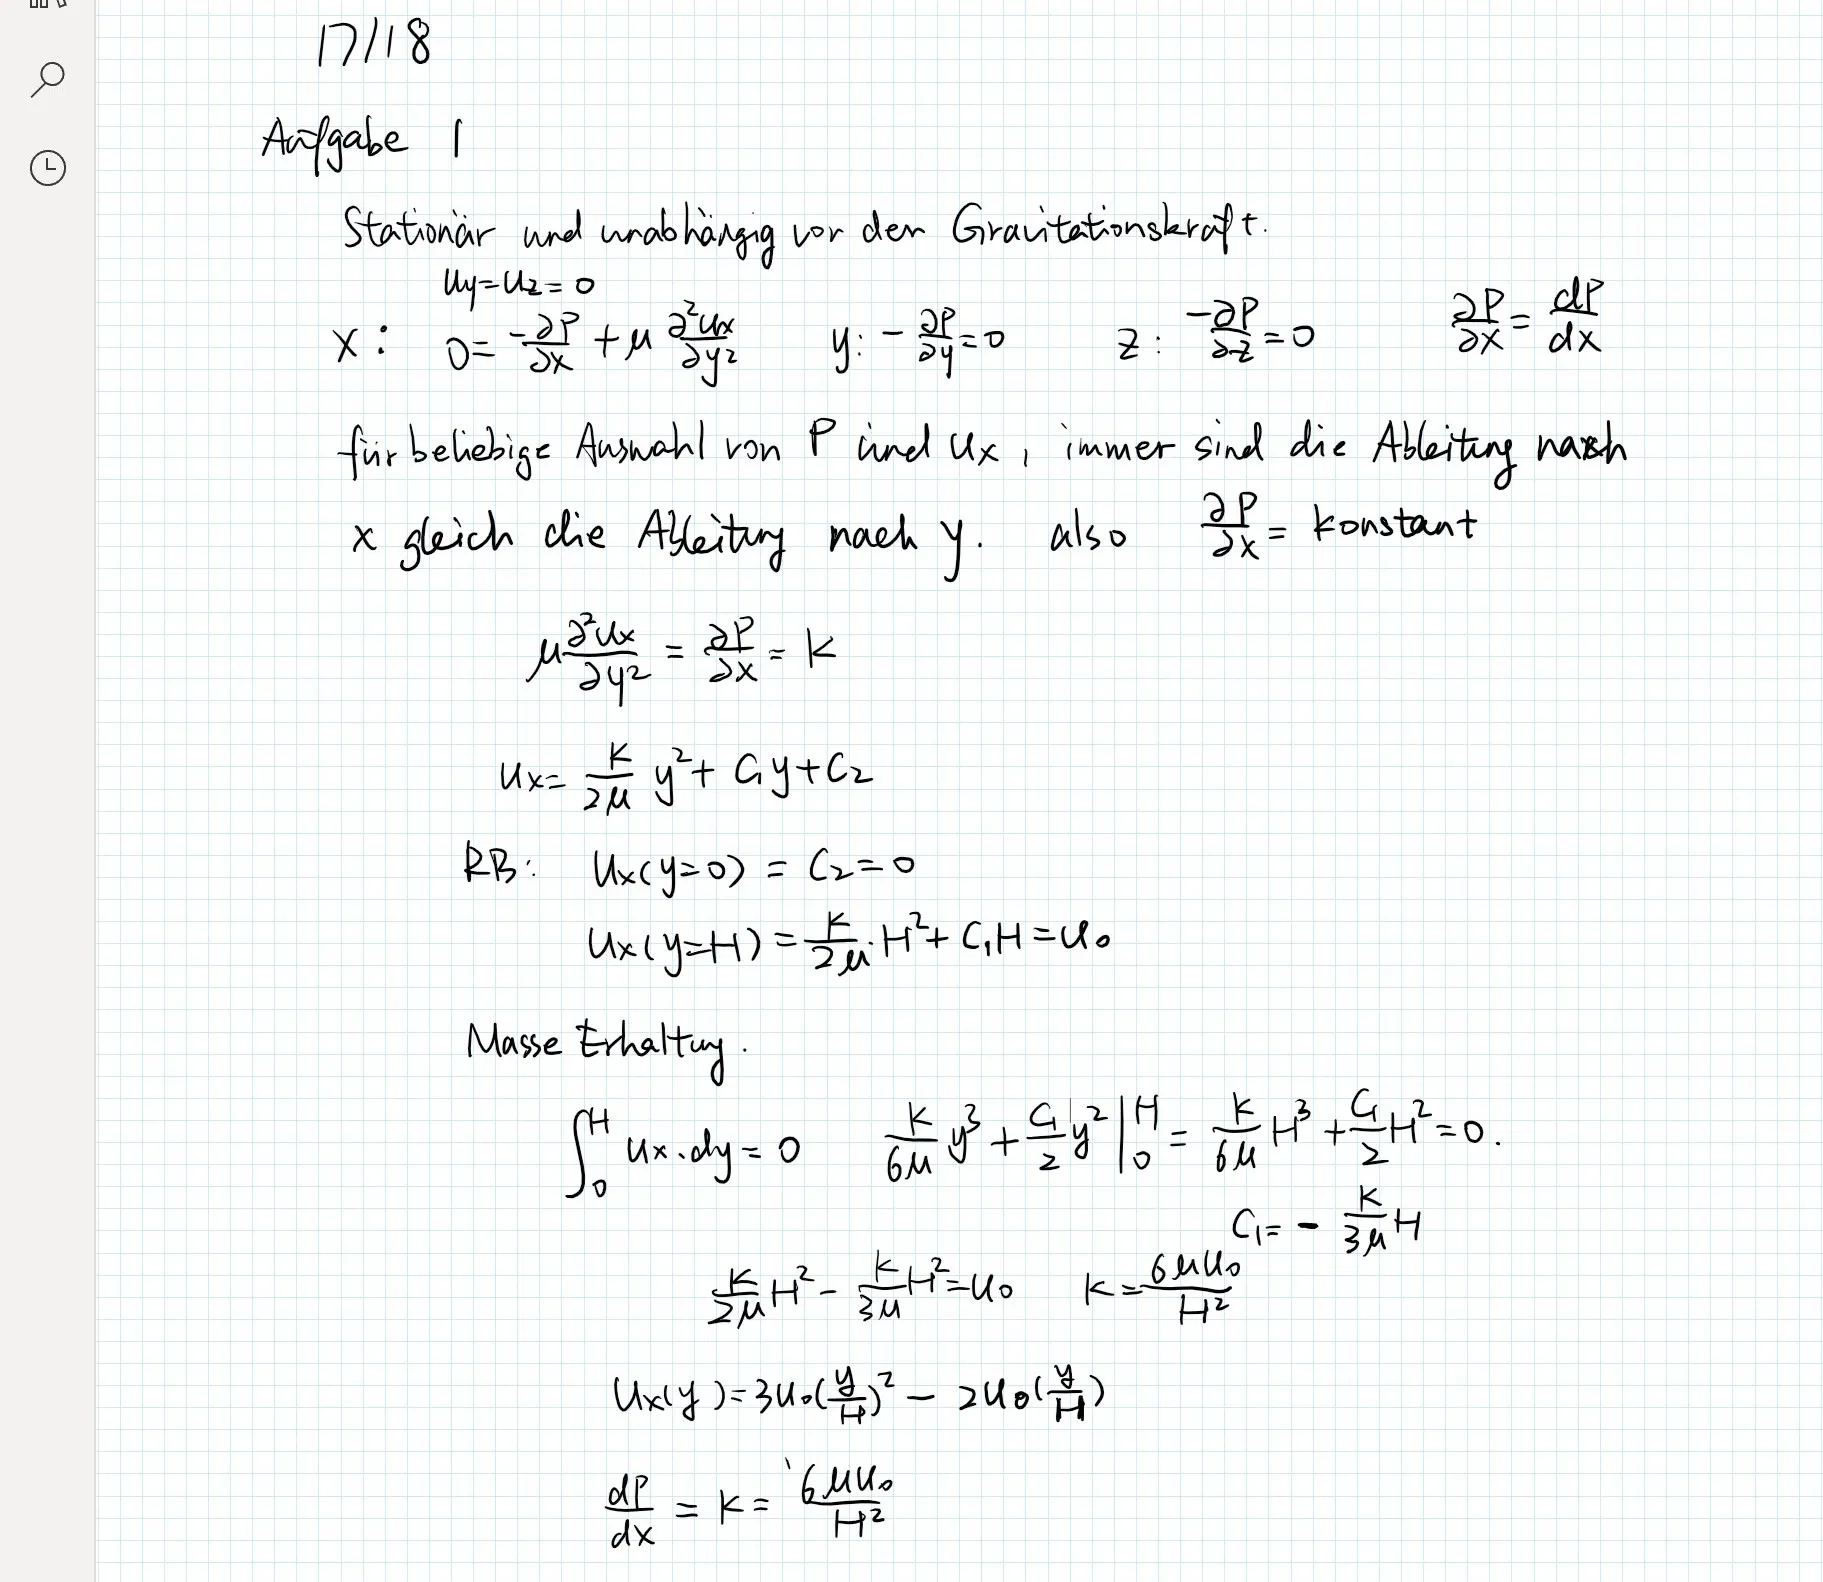 17/18
Aufgabe 1
Stationär und unabhängig von der Gravitationskraft.
uy=uz=0
x: 0= -∂P/∂x + μ ∂²ux/∂y² y: - ∂P/∂y =0 z: -∂P/∂z =0 ∂P/∂x = dP/dx
für beliebige Auswahl von P und ux, immer sind die Ableitung nach
x gleich die Ableitung nach y. also ∂P/∂x = konstant
μ ∂²ux/∂y² = ∂P/∂x = K
ux= K/2μ y²+ C₁y+C₂
RB: ux(y=0) = C₂=0
ux(y=H) = K/2μ · H²+ C₁H =u₀
Masse Erhaltung.
∫₀ᴴ ux·dy = 0 K/6μ y³ + C₁/2 y² |₀ᴴ = K/6μ H³ + C₁/2 H² =0.
C₁= - K/3μ H
K/2μ H² - K/3μ H² =u₀ K = 6μu₀/H²
ux(y)=3u₀(y/H)² - 2u₀(y/H)
dP/dx = K = 6μu₀/H²